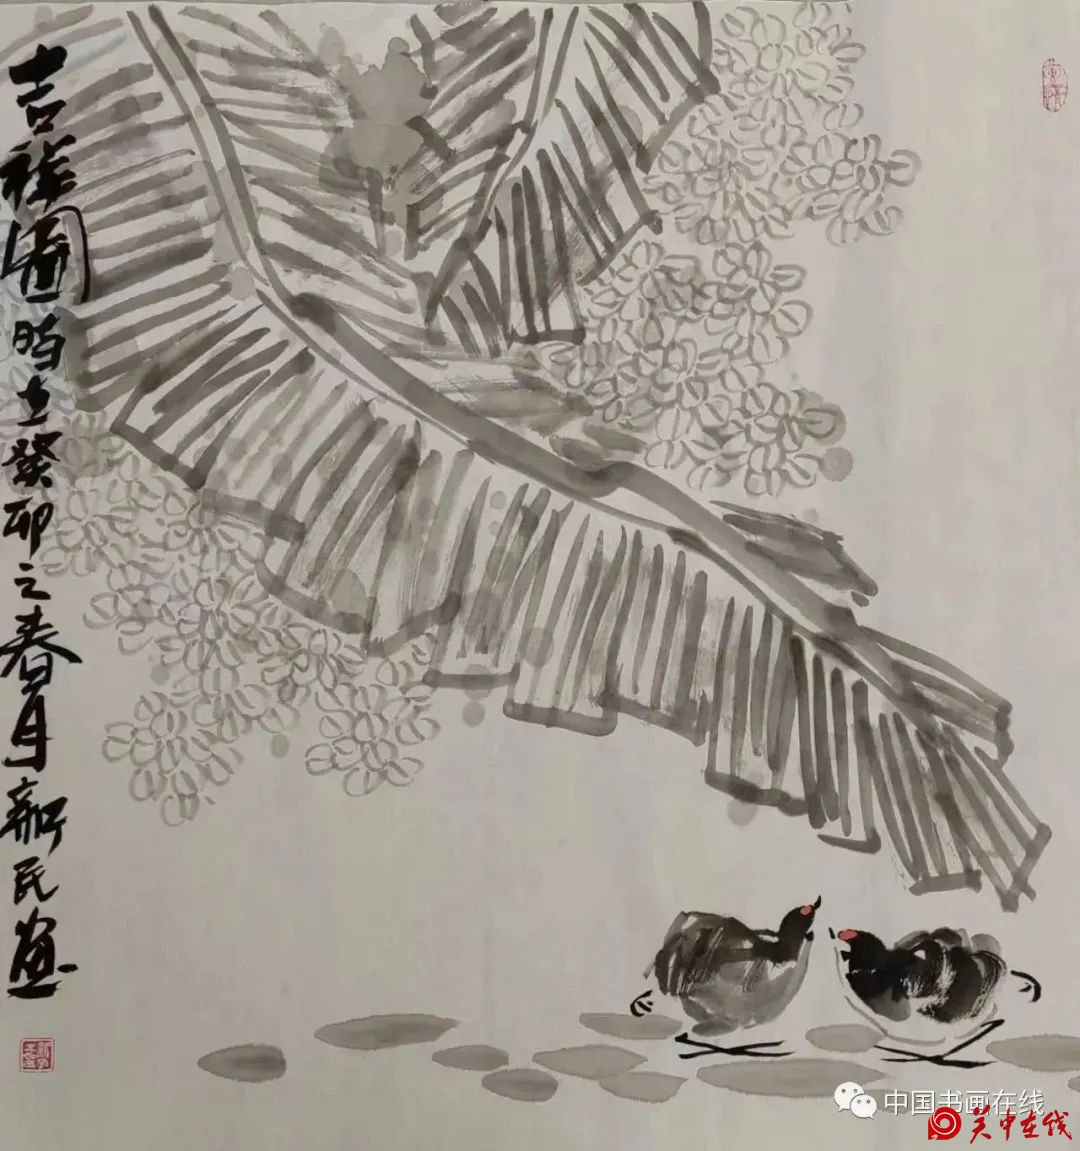 吉祥圖时在癸卯之春月新民画
中国书画在线
关中在线